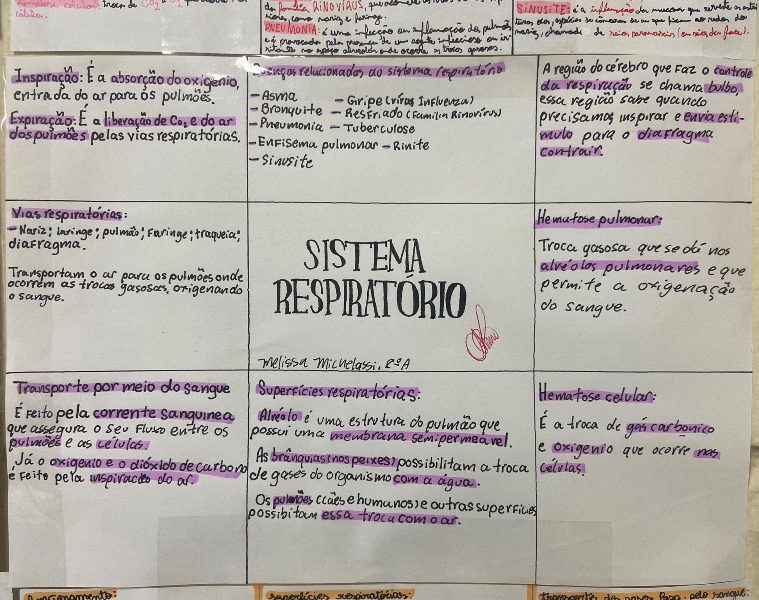 troca de CO₂
células.
da família RINOVÍRUS,
PNEUMONIA: é uma infecção ou inflamação do pulmão,
SINUSITE: é a inflamação da mucosa que reveste os
Inspiração: É a absorção do oxigenio,
entrada do ar para os pulmões.
Expiração: É a liberação de Co₂ e do ar
dos pulmões pelas vias respiratórias.
Doenças relacionadas ao sistema respiratório
- Asma
- Bronquite
- Pneumonia
- Enfisema pulmonar
- Sinusite
- Gripe (vírus Influenza)
- Resfriado (Família Rinovírus)
- Tuberculose
- Rinite
A região do cérebro que faz o controle
da respiração se chama bulbo,
essa região sabe quando
precisamos inspirar e envia estí-
mulo para o diafragma
contrair.
Vias respiratórias:
- Nariz; laringe; pulmão; faringe; traqueia;
diafragma.
Transportam o ar para os pulmões onde
ocorrem as trocas gasosas, oxigenando
o sangue.
SISTEMA
RESPIRATÓRIO
Melissa Michelassi, 2ºA
Hematose pulmonar:
Troca gasosa que se dá nos
alvéolos pulmonares e que
permite a oxigenação
do sangue.
Transporte por meio do sangue
É feito pela corrente sanguinea
que assegura o seu fluxo entre os
pulmões e as células.
Já o oxigenio e o dióxido de carbono
é feito pela inspiração do ar.
Superfícies respiratórias:
Alvéolo é uma estrutura do pulmão que
possui uma membrana semipermeável.
As brânquias (nos peixes) possibilitam a troca
de gases do organismo com a água.
Os pulmões (cães e humanos) e outras superfícies
possibitam essa troca com o ar.
Hematose celular:
É a troca de gás carbonico
e oxigenio que ocorre nas
células.
Funcionamento:
superfícies respiratórias:
transportes dos gases Resp. pelo sangue: